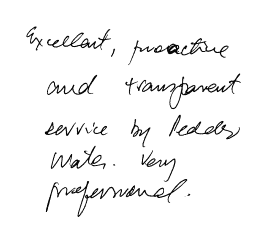 Excellent, proactive
and transparent
service by Pedder
Water. Very
professional.